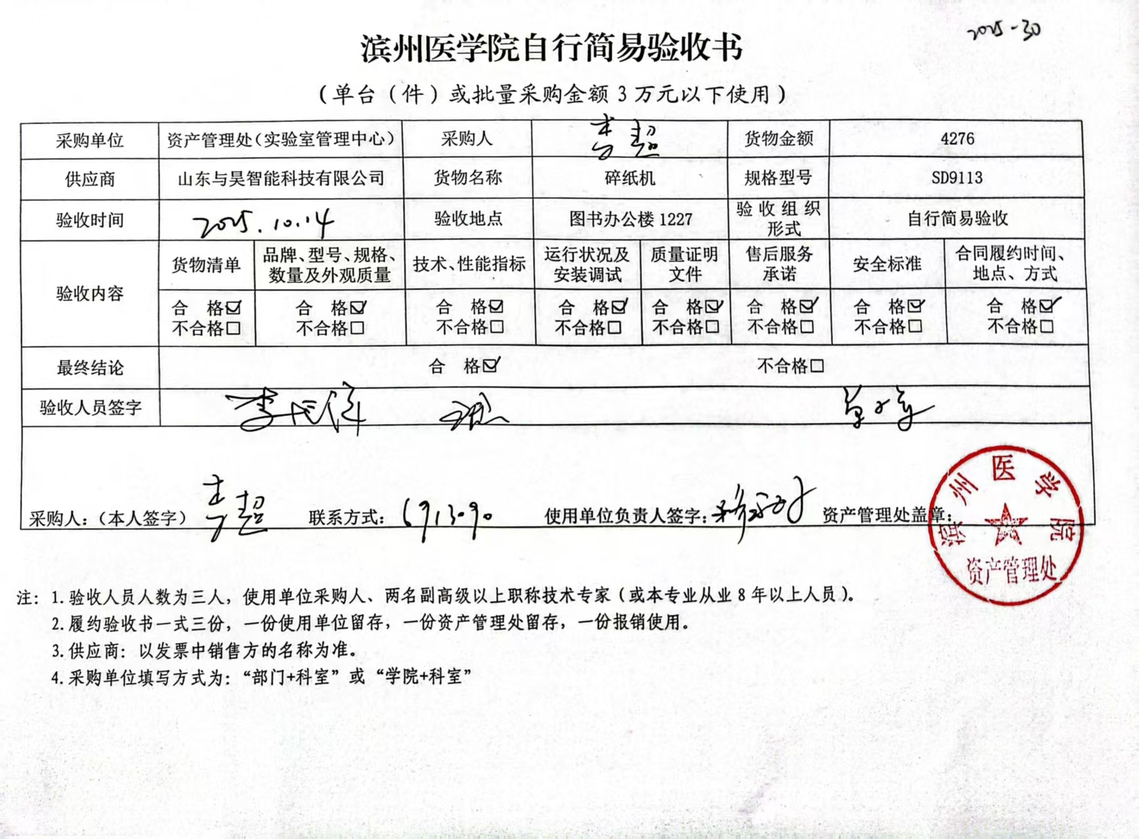 2025-30
滨州医学院自行简易验收书
(单台(件)或批量采购金额3万元以下使用)
采购单位 资产管理处(实验室管理中心) 采购人 李超 货物金额 4276
供应商 山东与昊智能科技有限公司 货物名称 碎纸机 规格型号 SD9113
验收时间 2025.10.14 验收地点 图书办公楼1227 验收组织形式 自行简易验收
验收内容 货物清单 品牌、型号、规格、数量及外观质量 技术、性能指标 运行状况及安装调试 质量证明文件 售后服务承诺 安全标准 合同履约时间、地点、方式
合 格☑ 合 格☑ 合 格☑ 合 格☑ 合 格☑ 合 格☑ 合 格☑ 合 格☑
不合格□ 不合格□ 不合格□ 不合格□ 不合格□ 不合格□ 不合格□ 不合格□
最终结论 合 格☑ 不合格□
验收人员签字
采购人:(本人签字) 李超 联系方式: 6913090 使用单位负责人签字: 资产管理处盖章:
滨州医学院
资产管理处
注:1.验收人员人数为三人,使用单位采购人、两名副高级以上职称技术专家(或本专业从业8年以上人员)。
2.履约验收书一式三份,一份使用单位留存,一份资产管理处留存,一份报销使用。
3.供应商:以发票中销售方的名称为准。
4.采购单位填写方式为:“部门+科室”或“学院+科室”